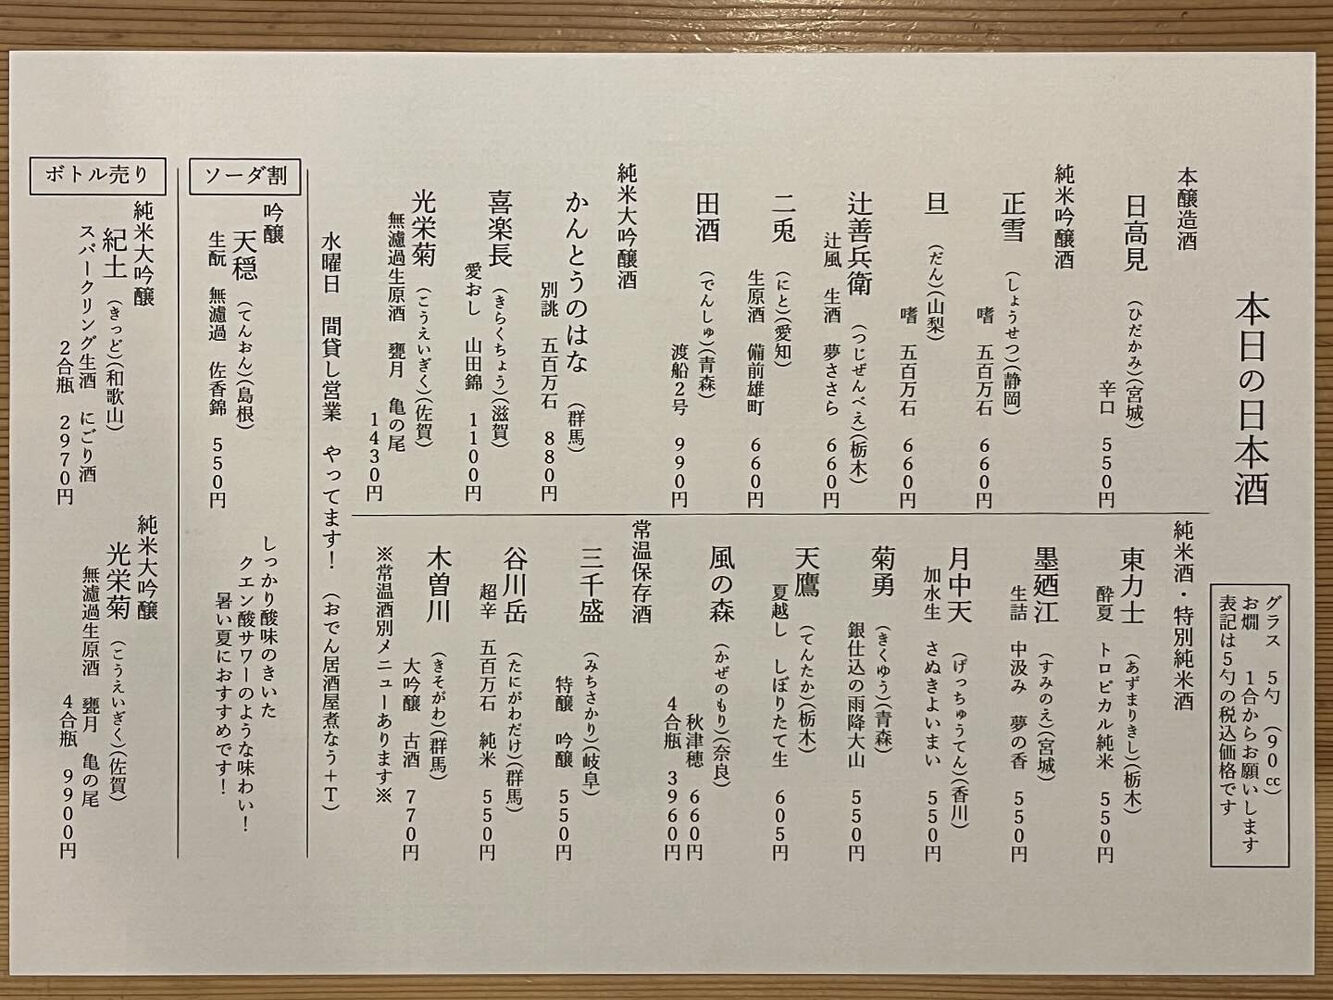 本日の日本酒
グラス 5勺 (90cc)
お燗 1合からお願いします
表記は5勺の税込価格です
本醸造酒
日高見 (ひだかみ)(宮城)
辛口 550円
純米吟醸酒
正雪 (しょうせつ)(静岡)
嗜 五百万石 660円
旦 (だん)(山梨)
嗜 五百万石 660円
辻善兵衛 (つじぜんべえ)(栃木)
辻風 生酒 夢ささら 660円
二兎 (にと)(愛知)
生原酒 備前雄町 660円
田酒 (でんしゅ)(青森)
渡船2号 990円
純米大吟醸酒
かんとうのはな (群馬)
別誂 五百万石 880円
喜楽長 (きらくちょう)(滋賀)
愛おし 山田錦 1100円
光栄菊 (こうえいぎく)(佐賀)
無濾過生原酒 甕月 亀の尾
1430円
純米酒・特別純米酒
東力士 (あずまりきし)(栃木)
酔夏 トロピカル純米 550円
墨廼江 (すみのえ)(宮城)
生詰 中汲み 夢の香 550円
月中天 (げっちゅうてん)(香川)
加水生 さぬきよいまい 550円
菊勇 (きくゆう)(青森)
銀仕込の雨降大山 550円
天鷹 (てんたか)(栃木)
夏越し しぼりたて生 605円
風の森 (かぜのもり)(奈良)
秋津穂 660円
4合瓶 3960円
常温保存酒
三千盛 (みちさかり)(岐阜)
特醸 吟醸 550円
谷川岳 (たにがわだけ)(群馬)
超辛 五百万石 純米 550円
木曽川 (きそがわ)(群馬)
大吟醸 古酒 770円
※常温酒別メニューあります※
水曜日 間貸し営業 やってます! (おでん居酒屋煮なう+T)
ソーダ割
吟醸
天穏 (てんおん)(島根)
生酛 無濾過 佐香錦 550円
しっかり酸味のきいた
クエン酸サワーのような味わい!
暑い夏におすすめです!
ボトル売り
純米大吟醸
紀土 (きっど)(和歌山)
スパークリング生酒 にごり酒
2合瓶 2970円
純米大吟醸
光栄菊 (こうえいぎく)(佐賀)
無濾過生原酒 甕月 亀の尾
4合瓶 9900円